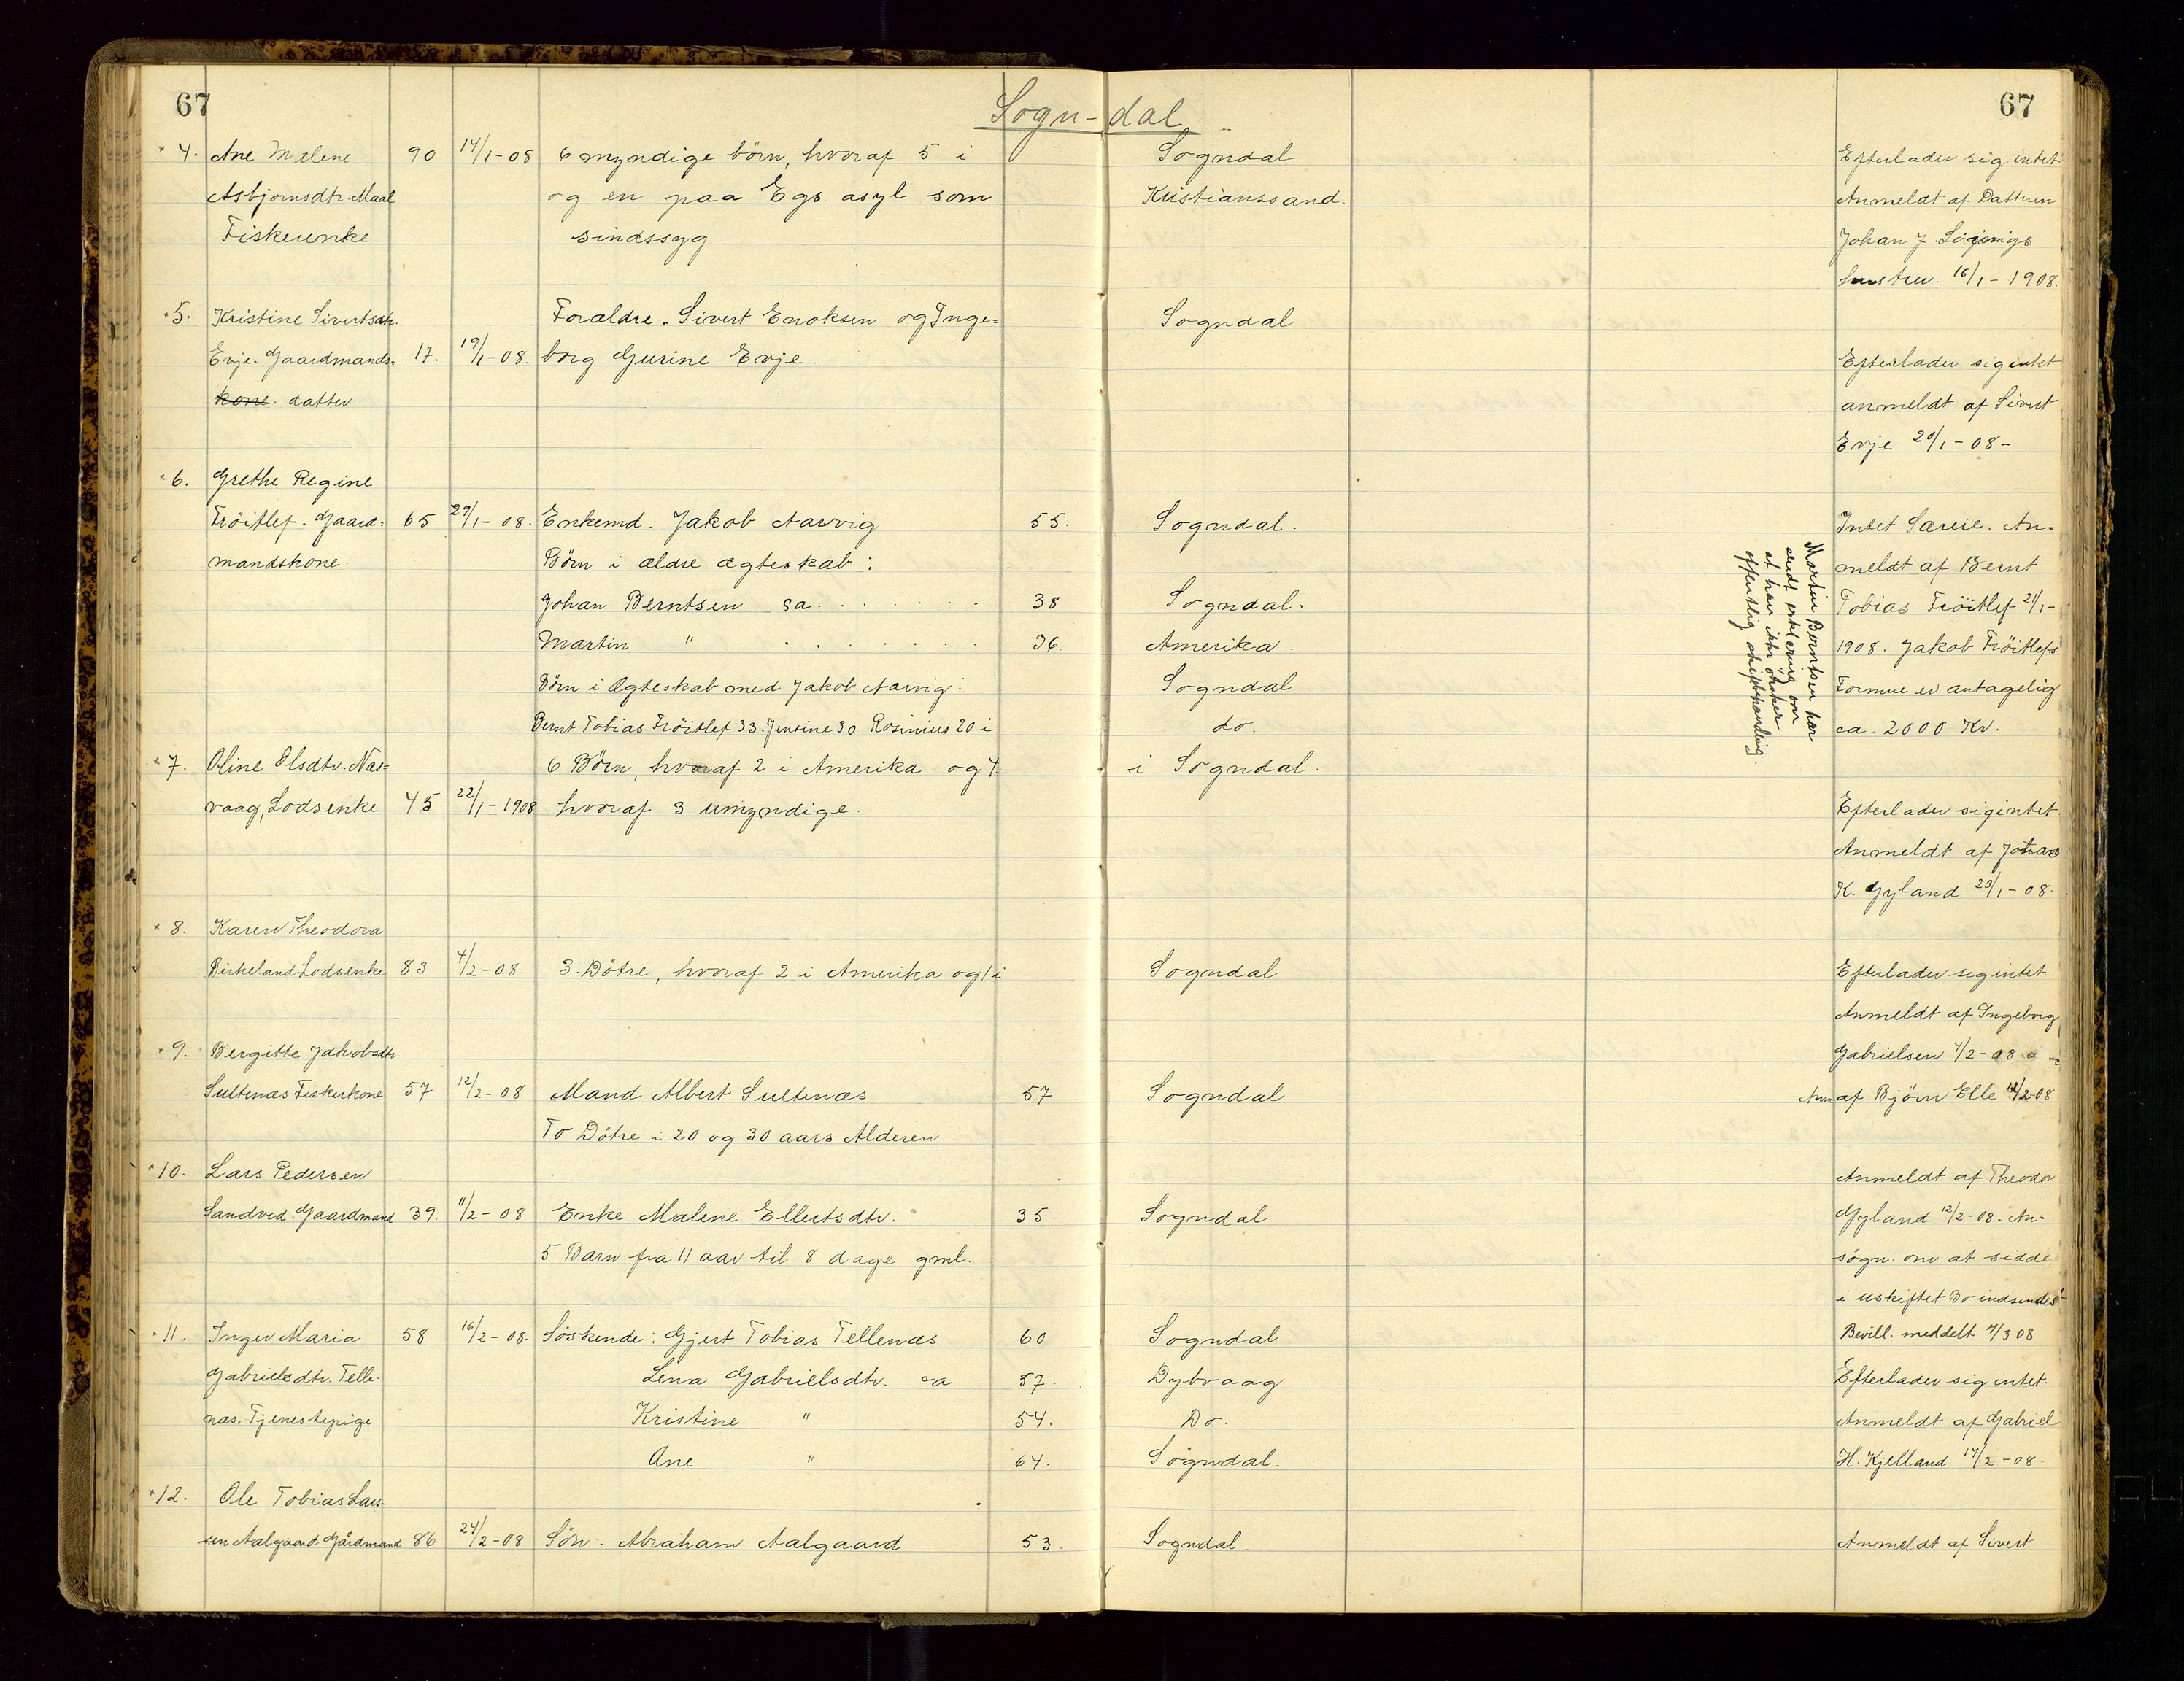 67
Sogn-dal
67
4. Ane Malene 90 14/1-08 6 myndige børn, hvoraf 5 i Sogndal Efterlader sig intet
Asbjornsdtr. Maal og en paa Egs asyl som Kristianssand. Anmeldt af Datteren
Fiskerenke sindssyg Johan J.
hustru. 16/1-1908.
5. Kristine Sivertsdtr. Forældre. Sivert Enoksen og Inge= Sogndal
Evje. Gaardmands= 17. 19/1-08. borg Gurine Evje. Efterlader sig intet
kone. datter anmeldt af Sivert
Evje 20/1-08-
6. Grethe Regine
Fröitlef. Gaard= 65 29/1-08. Enkemd. Jakob Aarvig 55. Sogndal. Intet Særeie. An=
mandskone. Börn i ældre ægteskab: meldt af Bernt
Johan Berntsen ca. 38 Sogndal. Tobias Fröitlef 21/1-
Martin " 36. Amerika. 1908. Jakob Fröitlefs
Börn i Ægteskab med Jakob Aarvig: Sogndal Formue er antagelig
Bernt Tobias Fröitlef 33. Jensine 30. Rosinius 20 i do. ca. 2000 Kr.
Martin Berntsen har
sendt erklæring om
at han ikke önsker
offentlig skiftebehandling.
7. Oline Olsdtr. Næs= 6 Börn, hvoraf 2 i Amerika og 4 i Sogndal.
vaag, Lodsenke 45 22/1-1908 hvoraf 3 umyndige. Efterlader sig intet.
Anmeldt af
K. Gyland 23/1-08.
8. Karen Theodora
Birkeland. Lodsenke 83 4/2-08. 3 Dötre, hvoraf 2 i Amerika og 1 i Sogndal Efterlader sig intet
Anmeldt af Ingeborg
9. Bergitte Jakobsdtr. Gabrielsen 7/2-08
Sultenæs Fiskerkone 57 12/2-08 Mand Albert Sultenæs 57 Sogndal Anm af Björn Elle 12/2-08
To Dötre i 20 og 30 aars Alderen
10. Lars Pedersen Anmeldt af Theodor
Sandved. Gaardmand 39. 11/2-08 Enke Malene Ellertsdtr. 35 Sogndal Gyland 12/2-08. An-
5 Barn fra 11 aar til 8 dage gml. sögn. om at sidde
i uskiftet Bo indsendes
11. Inger Maria 58 16/2-08. Söskende: Gjert Tobias Tellenæs 60 Sogndal. Bevill. meddelt 4/3 08
Gabrielsdtr. Telle- Lena Gabrielsdtr. ca 57. Dybvaag Efterlader sig intet.
næs. Tjenestepige Kristine " 54. Do. Anmeldt af Gabriel
Ane " 64. Sogndal. H. Kjelland 17/2-08.
12. Ole Tobias Lars-
sen Aalgaard Gårdmand 86 24/2-08 Sön. Abraham Aalgaard 53. Sogndal. Anmeldt af Sivert